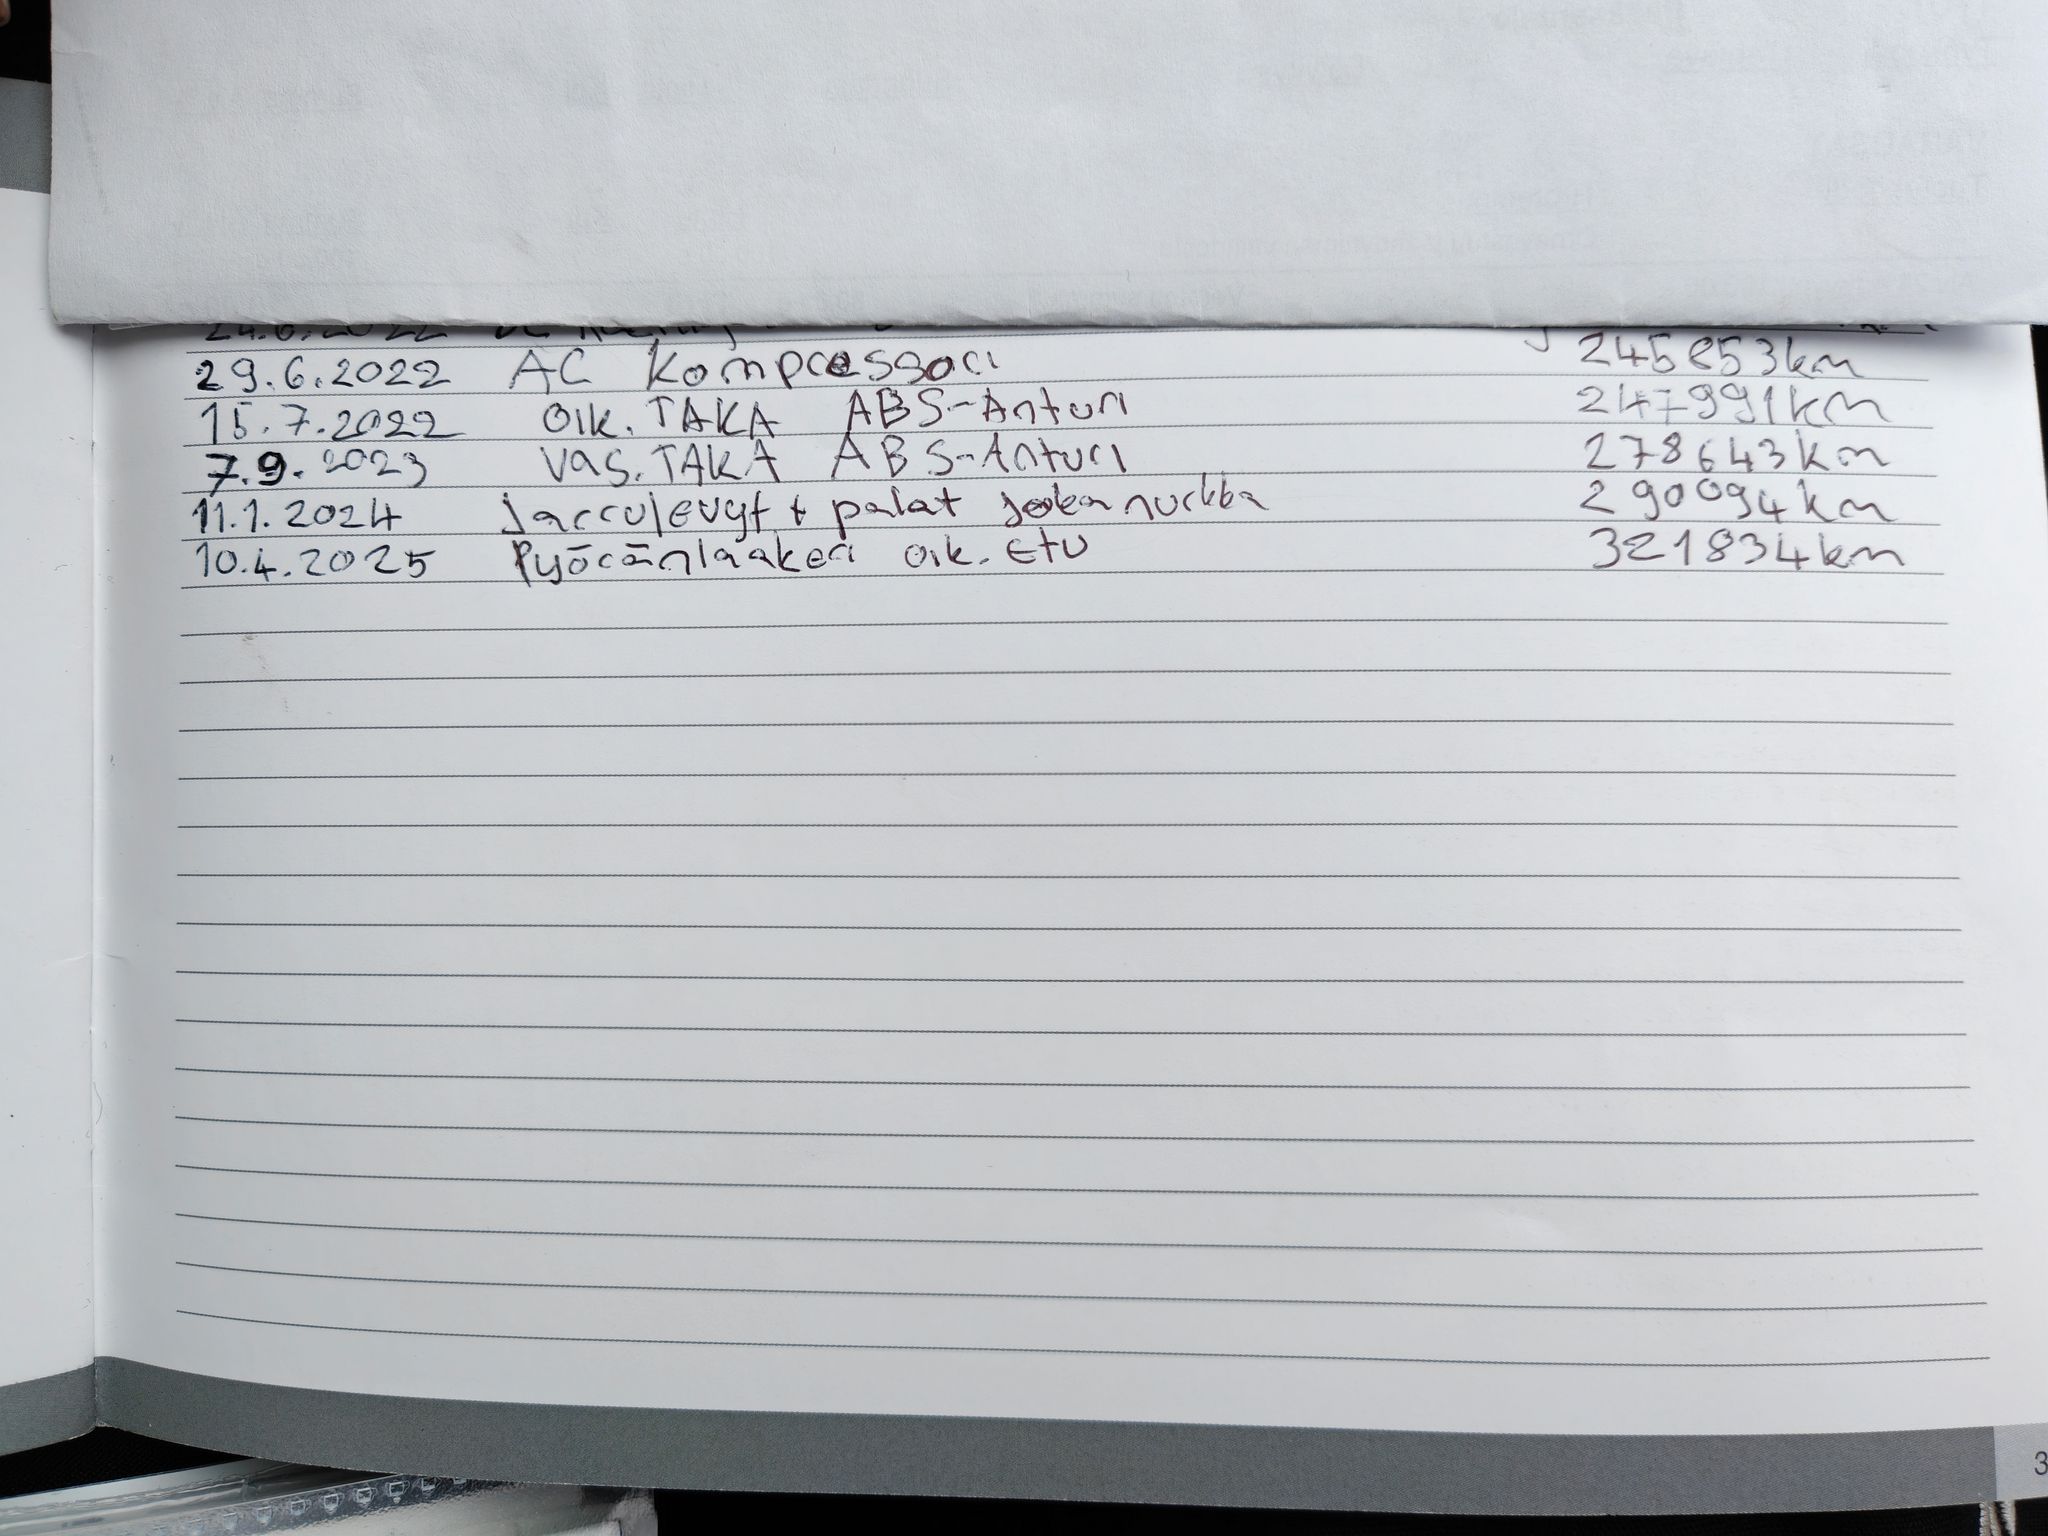 24.6.2022
29.6.2022 AC Kompressori 245853km
15.7.2022 oik. TAKA ABS-Anturi 247991km
7.9.2023 vas. TAKA ABS-Anturi 278643km
11.1.2024 Jarrulevyt + palat joka nurkka 290094km
10.4.2025 Pyöränlaakeri oik. Etu 321834km
3